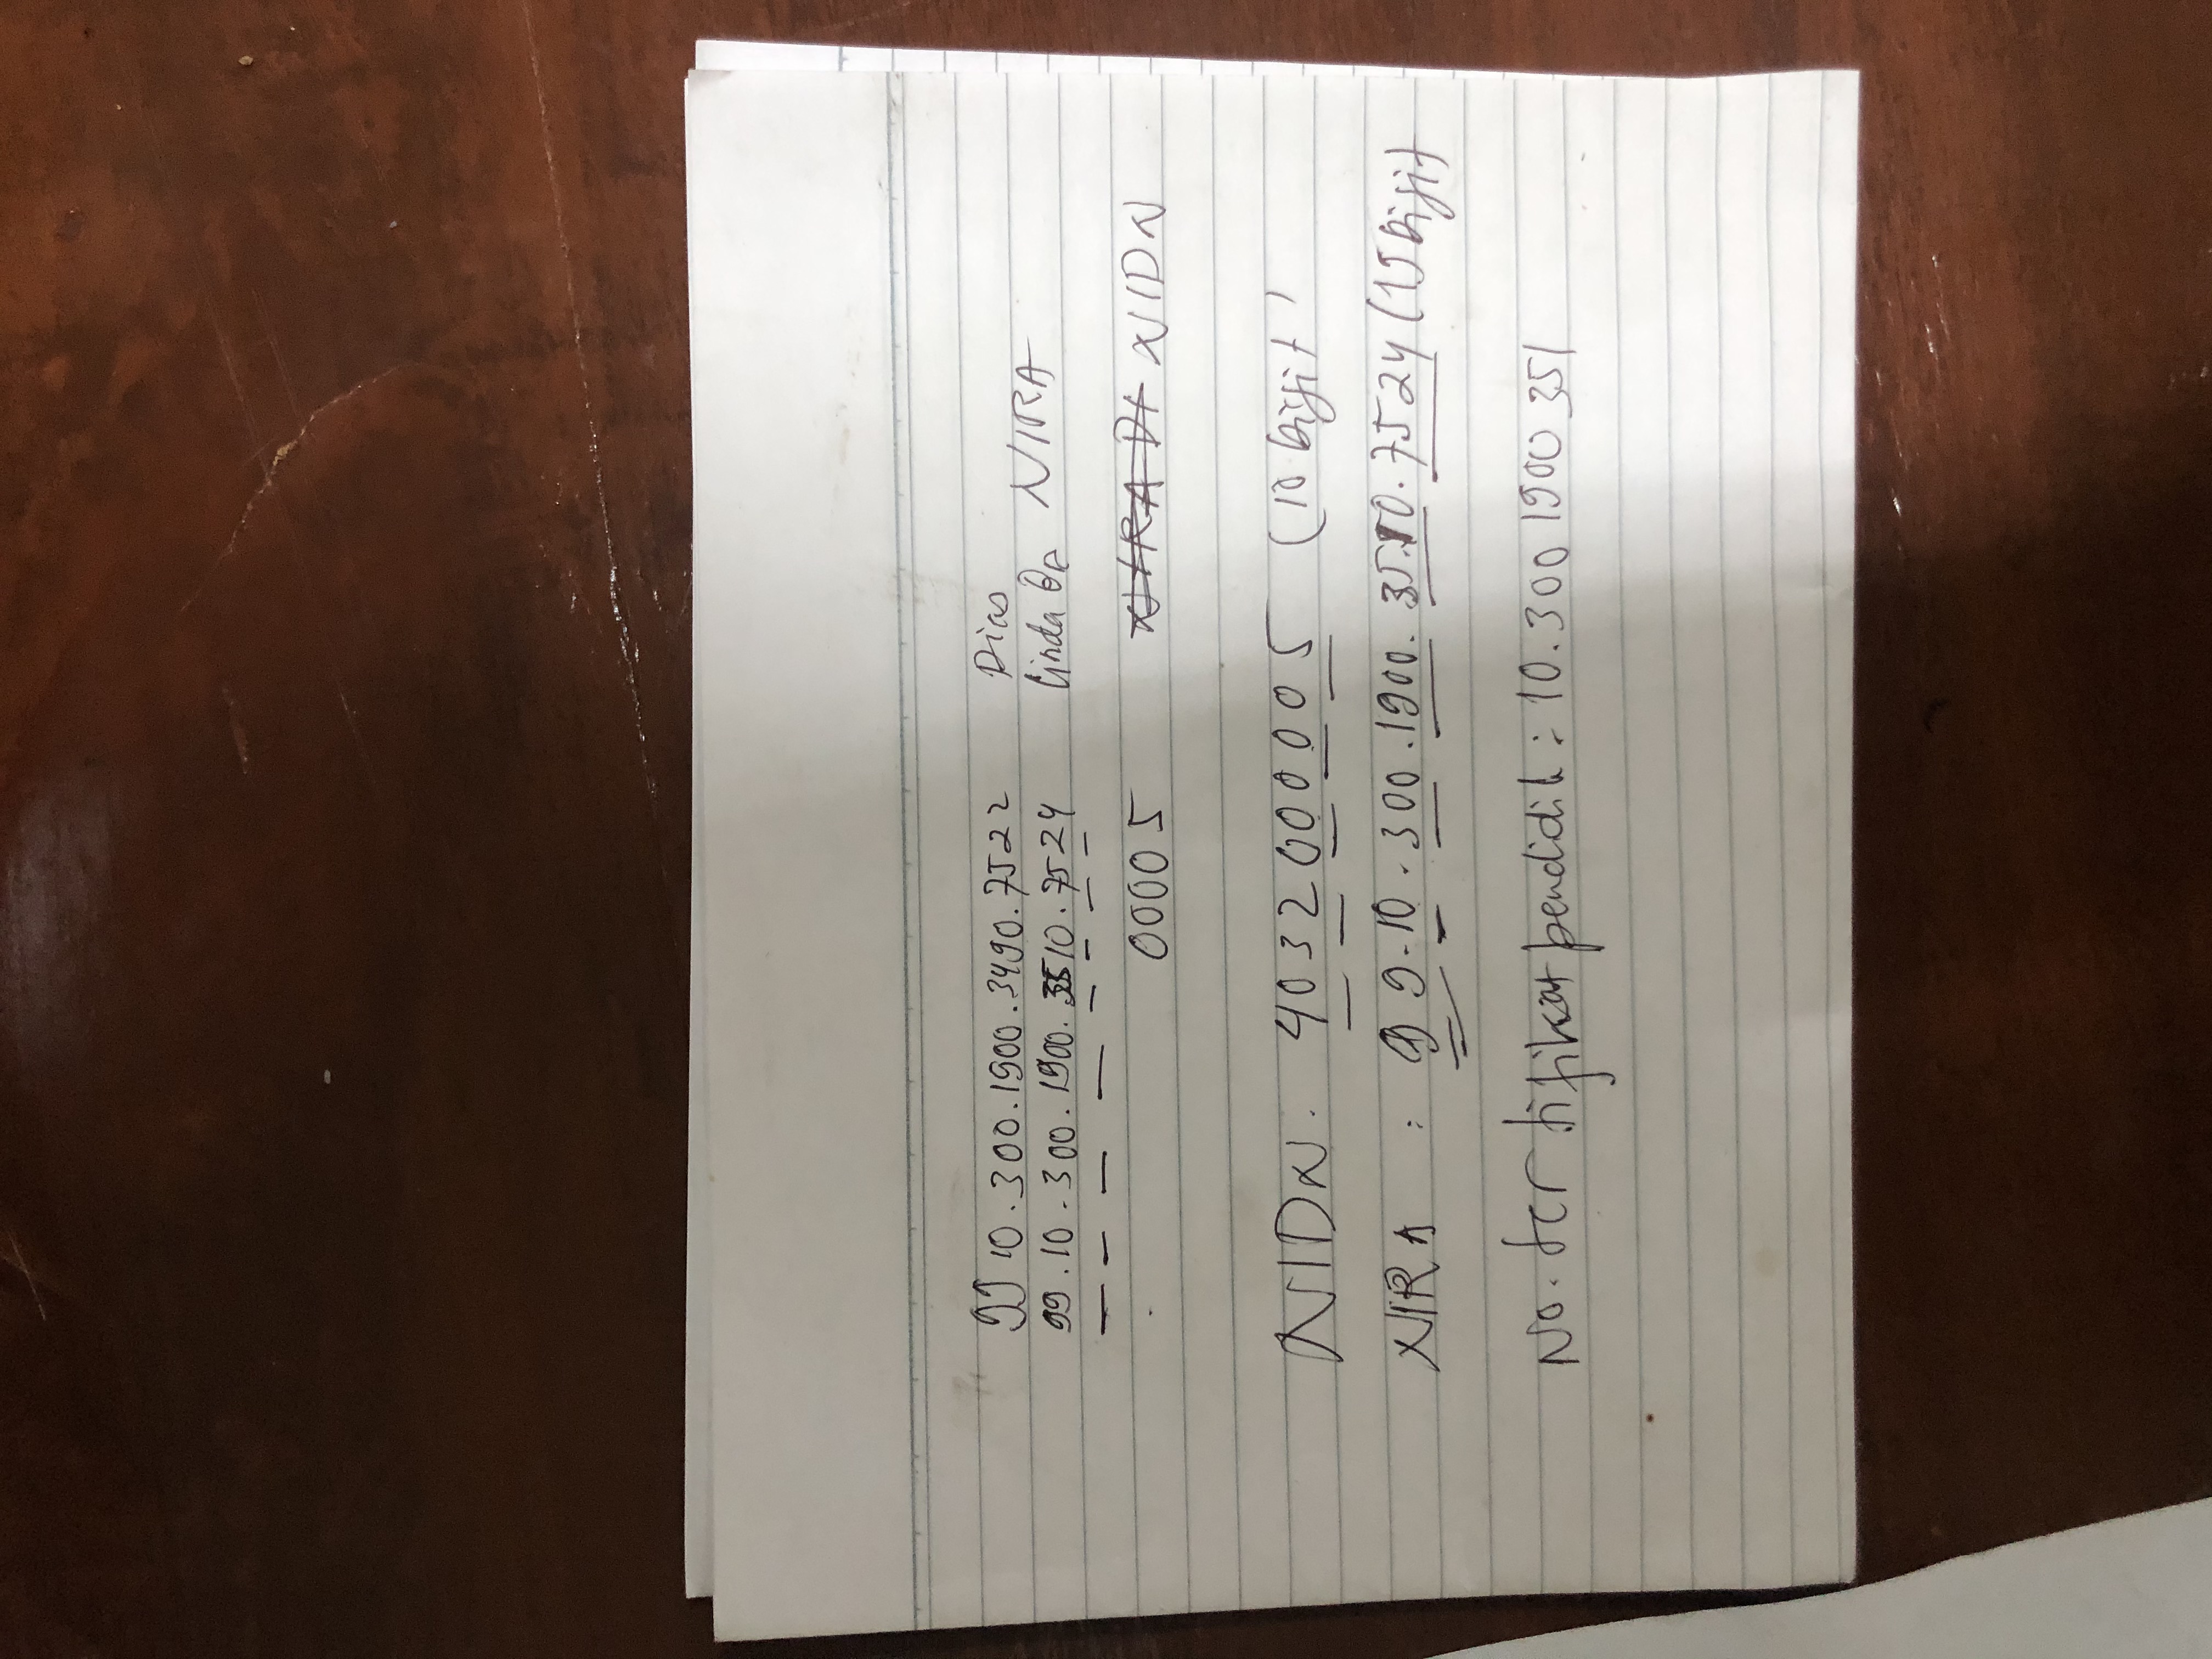 99 10.300.1900.3490.7522 Dias
99.10-300.1900.3510.7524 Linda NIRA
00005 NIRA DI NIDN
NIDN. 4032000005 (10 Digit)
NIRA : 99-10.300.1900.3510.7524 (15 Digit
No. Sertifikat pendidik : 10.300 1900 351